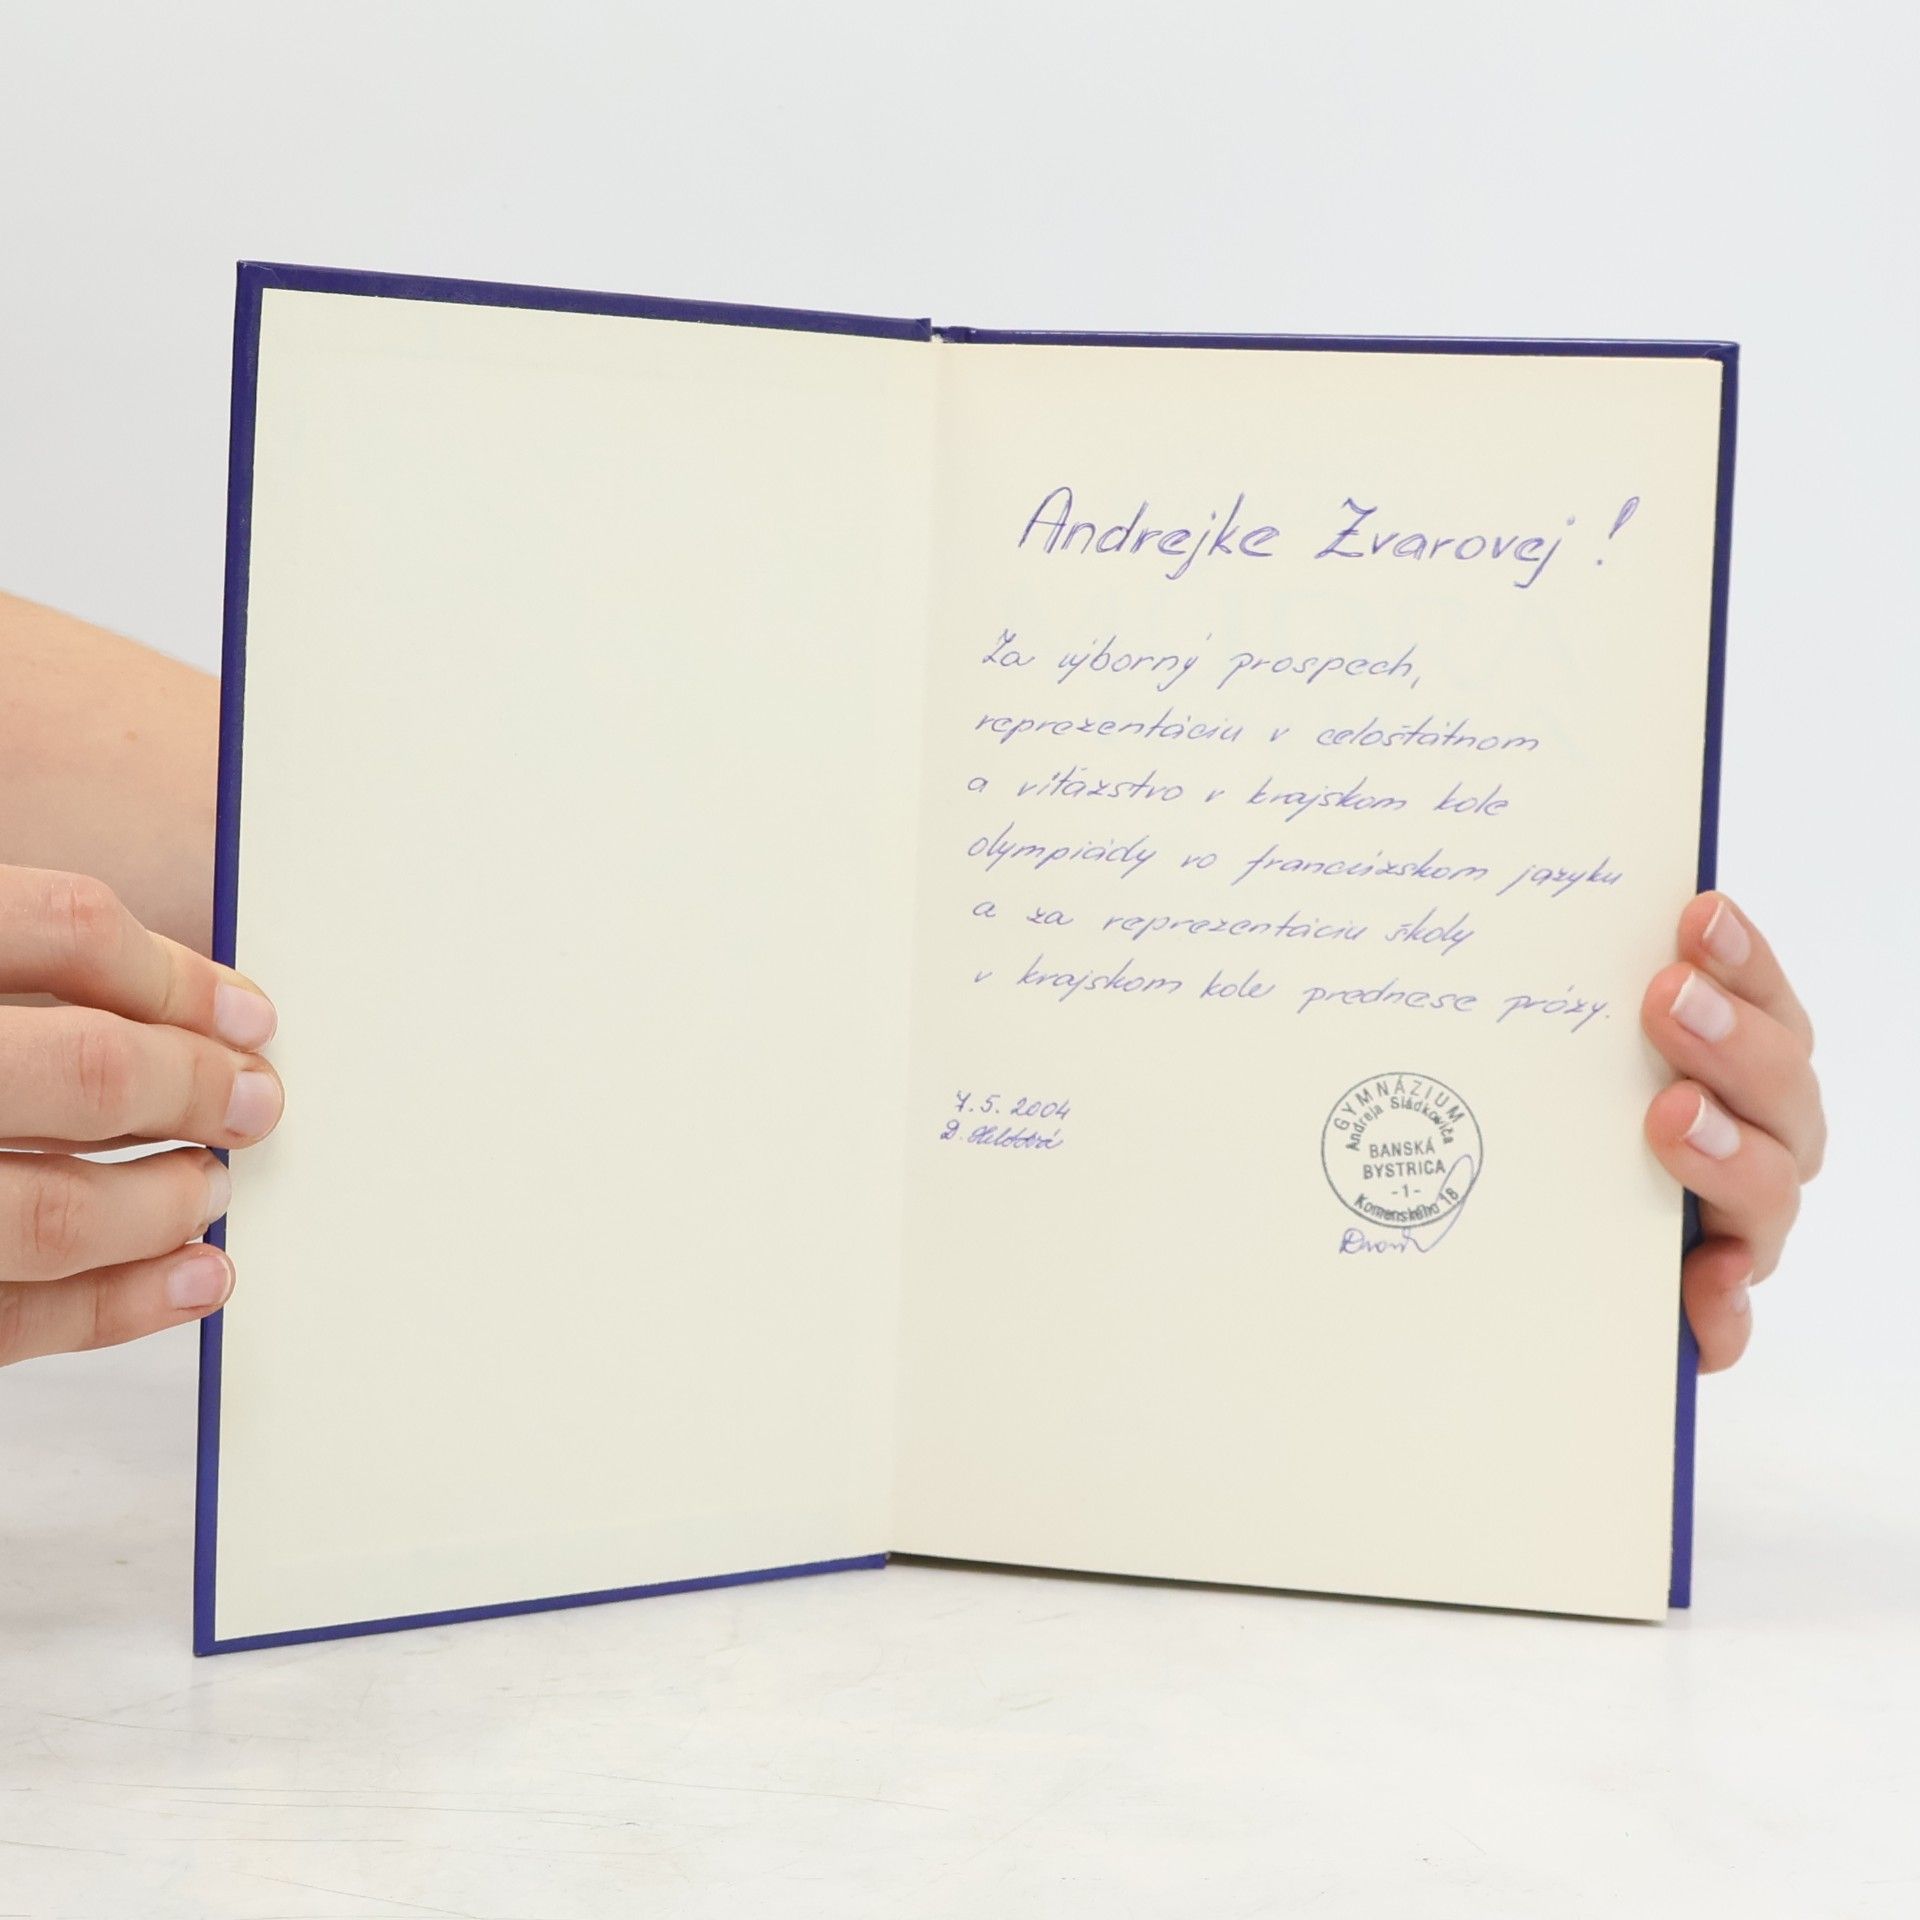 Andrejke Zvarovej!
Za výborný prospech,
reprezentáciu v celoštátnom
a víťazstvo v krajskom kole
olympiády vo francúzskom jazyku
a za reprezentáciu školy
v krajskom kole prednese prózy.
7.5.2004
D.
GYMNÁZIUM
Andreja Sládkoviča
BANSKÁ
BYSTRICA
-1-
Komenského 18